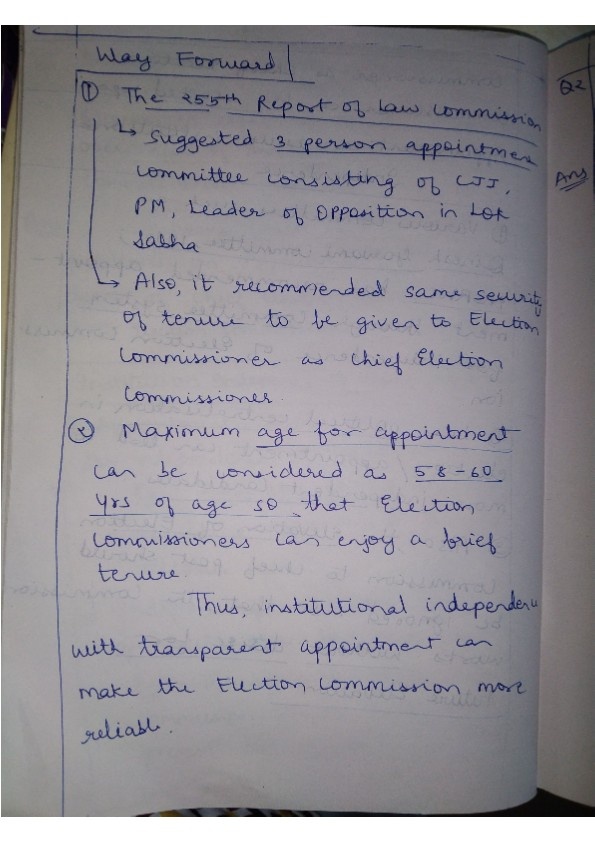 Way Forward
① The 255th Report of Law Commission
↳ Suggested 3 person appointment
committee consisting of CJI,
PM, Leader of Opposition in Lok
Sabha
↳ Also, it recommended same security
of tenure to be given to Election
Commissioner as Chief Election
Commissioner.
② Maximum age for appointment
can be considered as 58-60
yrs of age so that Election
Commissioners can enjoy a brief
tenure
Thus, institutional independence
with transparent appointment can
make the Election Commission more
reliable.
Q2
Ans